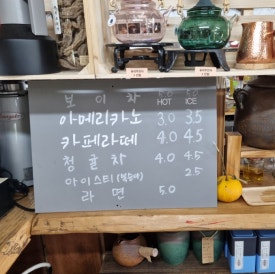 보이차 5.0 5.0
HOT ICE
아메리카노 3.0 3.5
카페라떼 4.0 4.5
청귤차 4.0 4.5
아이스티 2.5
라면 5.0